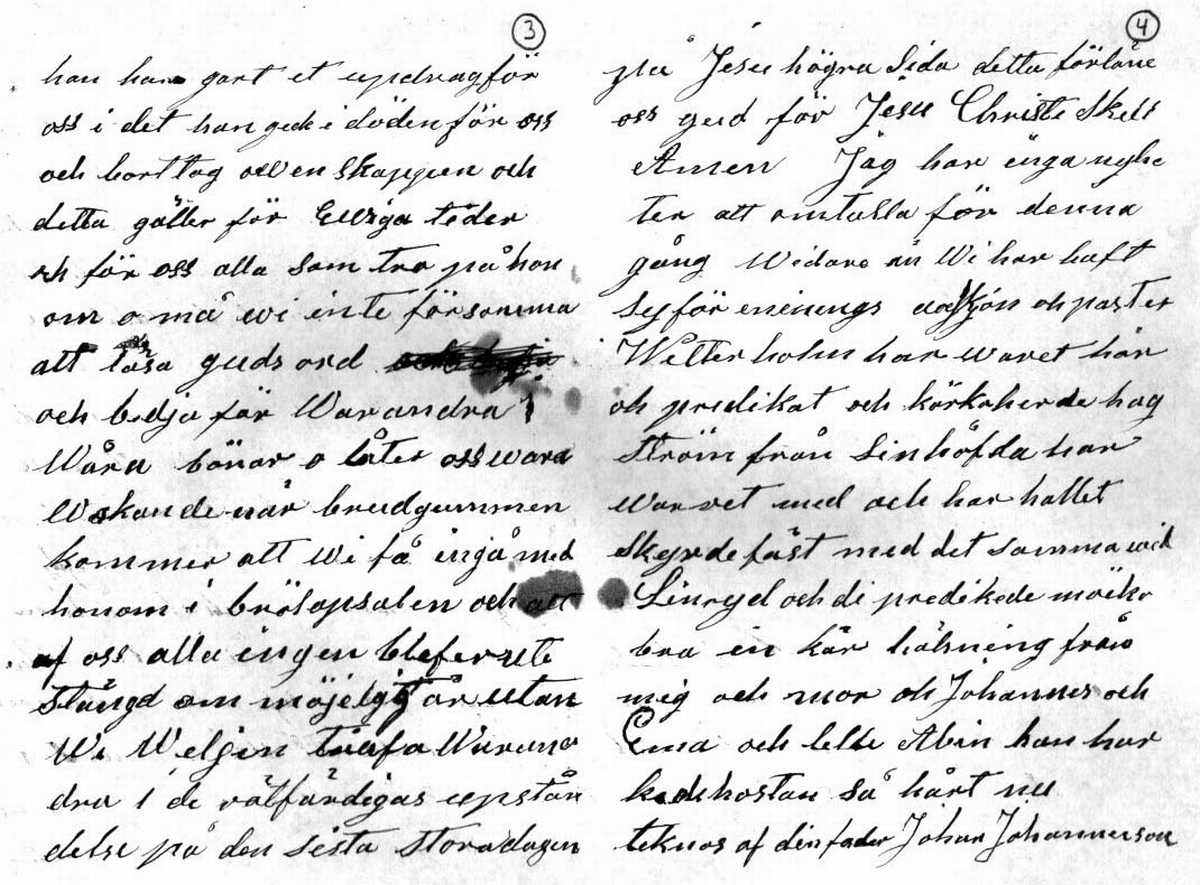 3
han har gort et updrag för
oss i det han gick i döden för oss
och bort tog owenskappen och
detta gäller för Ewiga tider
och för oss alla som tro på hon
om o må wi inte försomma
att läsa guds ord
och bedja för Warandra i
Wåra böner o låter oss wara
Wakande när brudgummen
kommer att wi få ingå med
honom i brölopsalen och att
af oss alla ingen blefer ute
stängd om möjeligt är utan
Wi Weljen träfa Waran
dra i de rätfärdigas upstån
delse på den sista stora dagen
4
på Jesu högra Sida detta förläne
oss gud för Jesu Christi Skull
Amen Jag har inga nyhe
ter att omtalla för denna
gång Widare än Wi har haft
syförenings och paster
Wetterholm har waret här
oh predikat och körkoherde hag
ström från Linhöfda har
warvet med och har hallet
Skyrdefäst med det samma wid
Linryd och di predikede möcke
bra en kär hälsning från
mig och mor oh Johannes och
Ema och lelle Albin han har
kikhostan så hårt nu
teknas af din fader Johan Johannesson